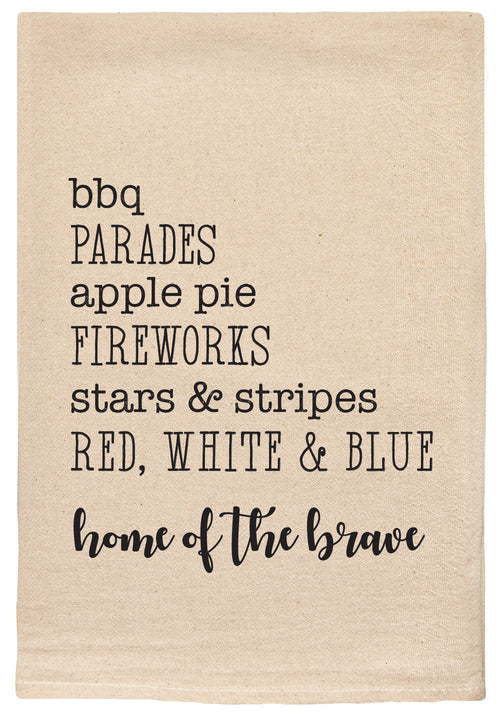 bbq
PARADES
apple pie
FIREWORKS
stars & stripes
RED, WHITE & BLUE
home of the brave